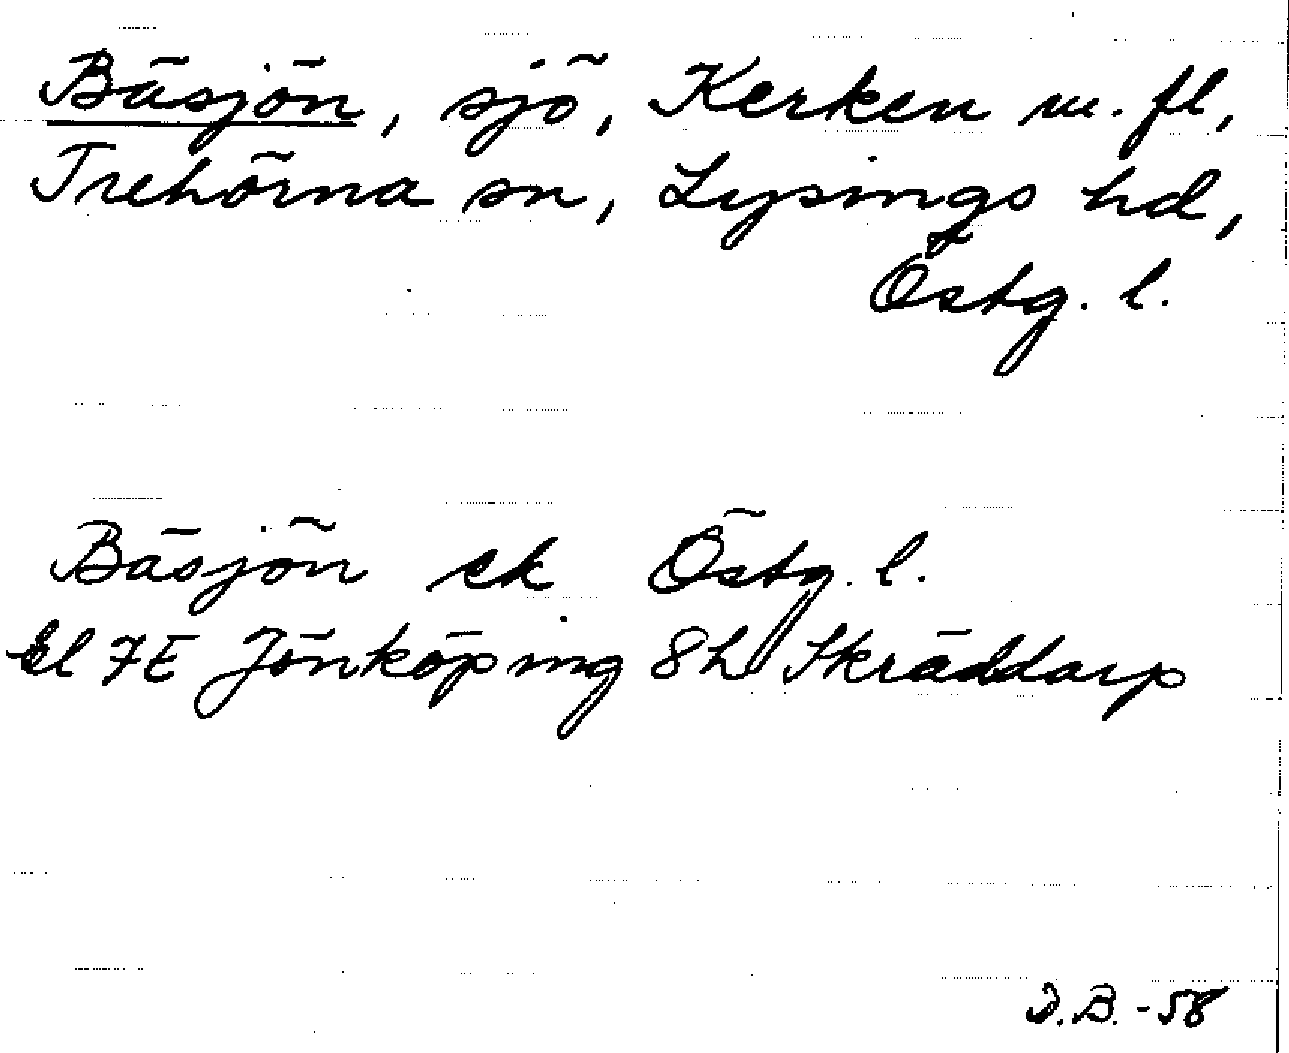 Bäsjön, sjö, Kerken m. fl,
Trehörna sn, Lysings hd,
Östg. l.
Bäsjön ek Östg. l.
El 7E Jönköping 8h Skräddarp
D.B. -58